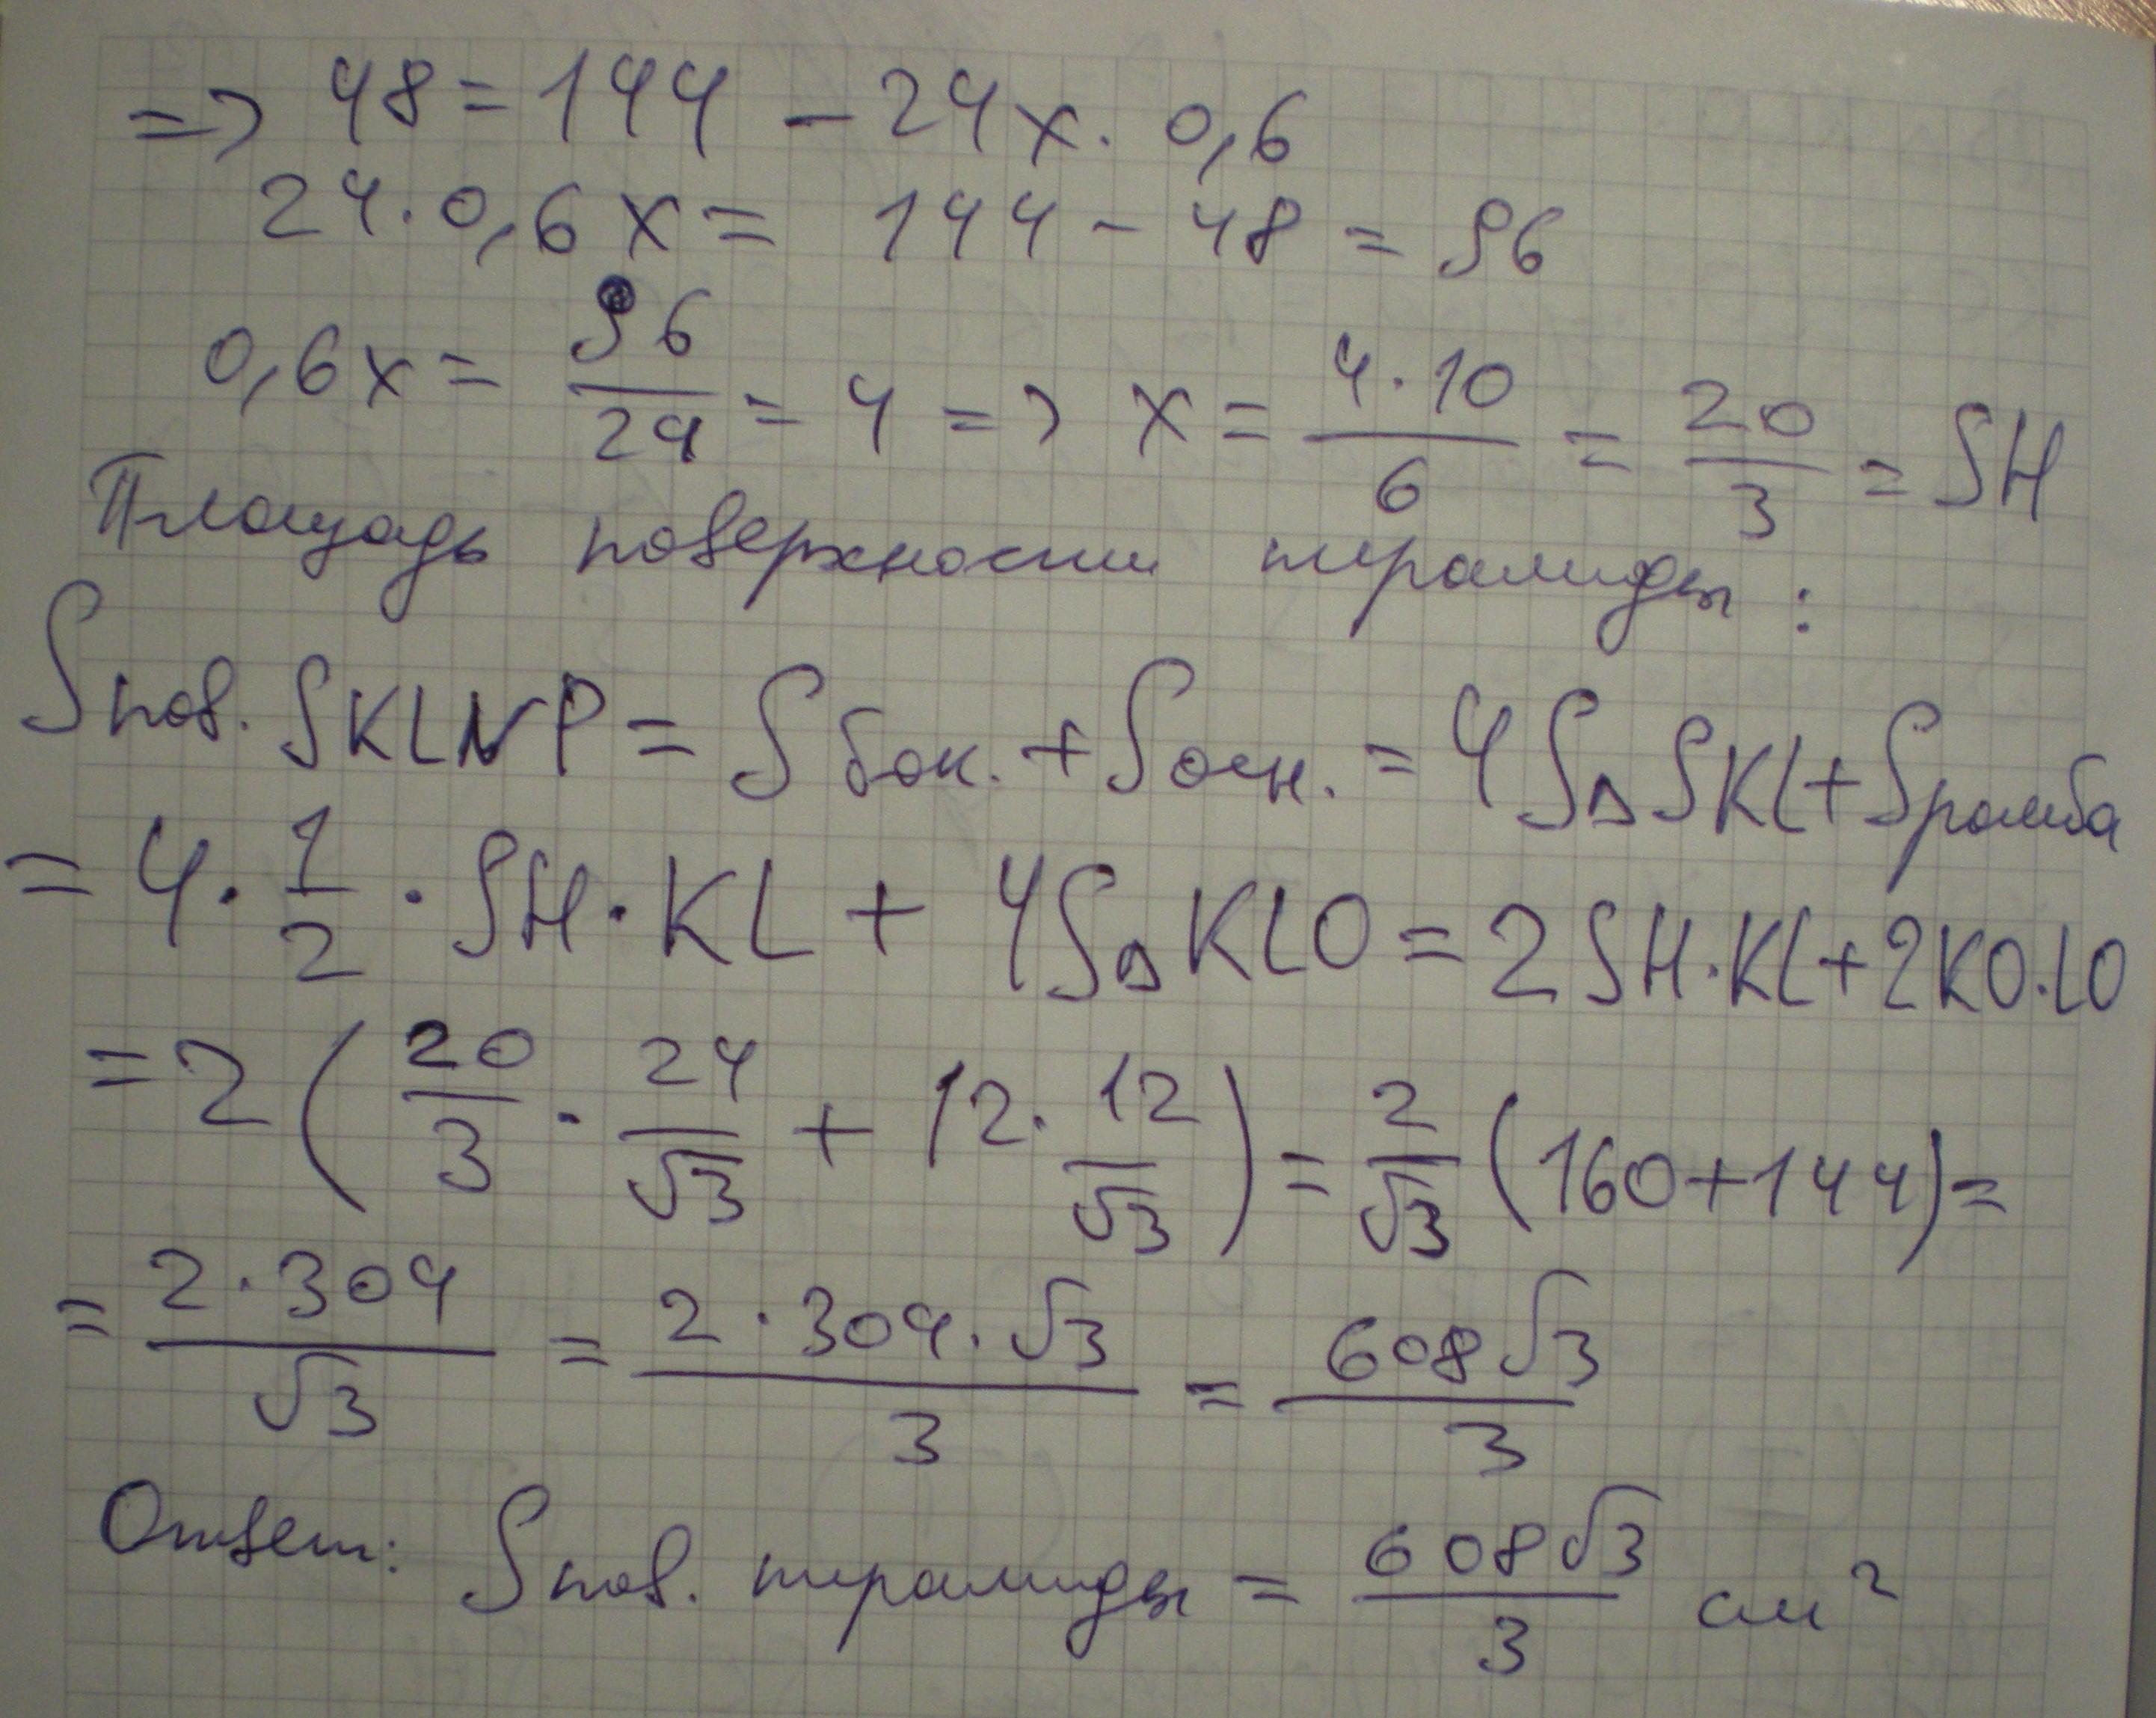 => 48 = 144 - 24x · 0,6
24 · 0,6x = 144 - 48 = 96
0,6x = 96/24 = 4 => x = 4·10/6 = 20/3 = SH
Площадь поверхности пирамиды:
Sпов. SKLNP = Sбок. + Sосн. = 4S△SKL + Sромба
= 4 · 1/2 · SH · KL + 4S△KLO = 2SH·KL + 2KO·LO
= 2(20/3 · 24/√3 + 12 · 12/√3) = 2/√3 (160 + 144) =
= 2·304/√3 = 2·304·√3/3 = 608√3/3
Ответ: Sпов. пирамиды = 608√3/3 см²